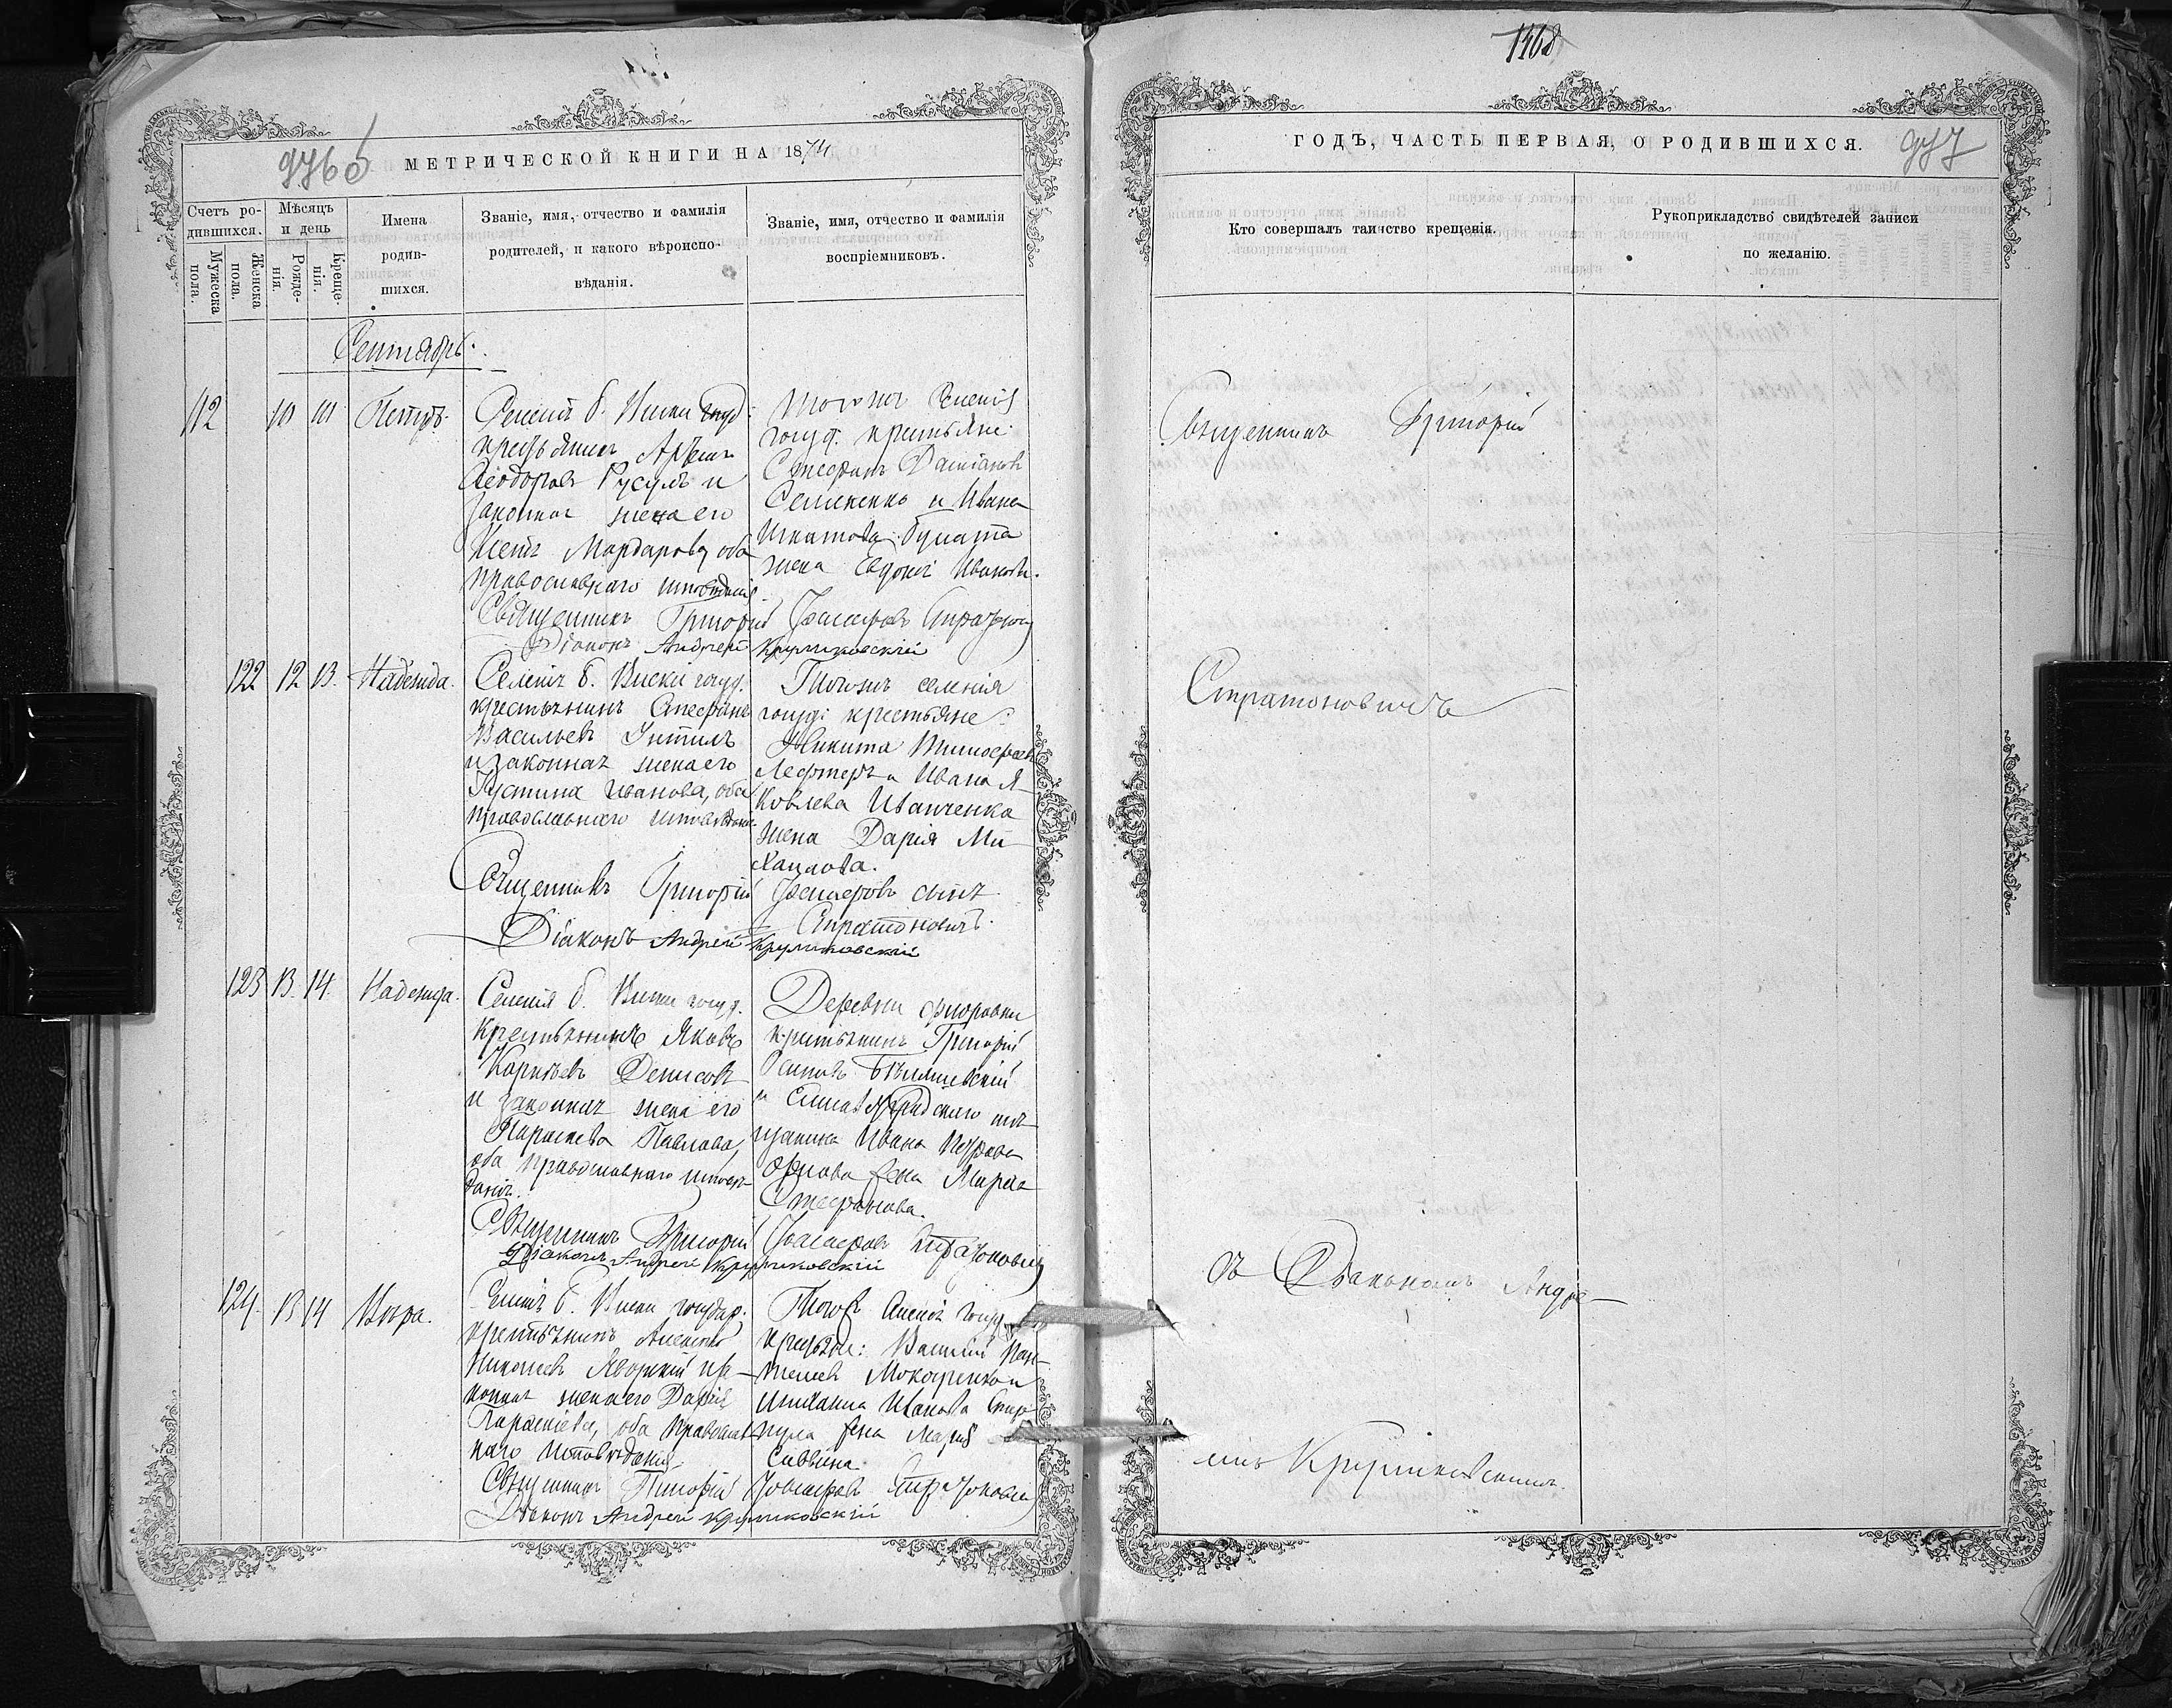 1468
976 б
МЕТРИЧЕСКОЙ КНИГИ НА 1874
Счетъ ро-
дившихся.
Мужеска
пола.
Женска
пола.
Мѣсяцъ
и день
Рожде-
нія.
Креще-
нія.
Имена
родив-
шихся.
Званіе, имя, отчество и фамилія
родителей, и какого вѣроиспо-
вѣданія.
Званіе, имя, отчество и фамилія
воспріемниковъ.
Сентябрь.
112
10
Петръ.
Селенія б. Виски госуд.
крестьянинъ
Ѳеодоровъ Русулъ и
законная жена его
Мардарова, оба
православнаго исповѣданія
Того же селенія
госуд. крестьяне:
Стефанъ Даміановъ
Семененко и Ивана
Игнатова
жена Евдокія Иванова.
Священникъ Григорій Стратонович
Діаконъ Андрей Крушковскій
122
12
13.
Надежда.
Селенія б. Виски госуд.
крестьянинъ Стефанъ
Васильевъ Унтилъ
и законная жена его
Іустина Иванова, оба
православнаго исповѣдан.
Того же селенія
госуд: крестьяне:
Никита Тимофѣевъ
Лефтеръ и Ивана Я-
ковлева Иванченка
жена Дарія Ми-
хаилова.
Священникъ Григорій сынъ
Стратоновичъ.
Діаконъ Андрей Крушковскій
123
13.
14.
Надежда.
Селенія б. Виски госуд.
крестьянинъ Яковъ
Карповъ Денисовъ
и законная жена его
Параскева Павлова,
оба православнаго исповѣ-
данія.
Деревни
крестьянинъ Григорій
Осиповъ
и Елисаветградскаго мѣ-
щанина Ивана Петрова
Орлова жена Марія
Стефанова.
Священникъ Григорій Стратонович
Діаконъ Андрей Крушковскій
124.
13
14
Вѣра.
Селенія б. Виски государ.
крестьянинъ Алексѣй
Николаевъ Яворскій и за-
конная жена его Дарія
оба православ-
наго исповѣданія
Того же селенія госуд.
крестьяне: Василій Пан-
телеевъ Мокаренко и
Ивана
жена Марія
Саввина
Священникъ Григорій Стратонович
Діаконъ Андрей Крушковскій
ГОДЪ, ЧАСТЬ ПЕРВАЯ, О РОДИВШИХСЯ.
977
Кто совершалъ таинство крещенія.
Рукоприкладство свидѣтелей записи
по желанію.
Священникъ Григорій
Стратоновичъ
съ Діакономъ Андре-
емъ Крушковскимъ.